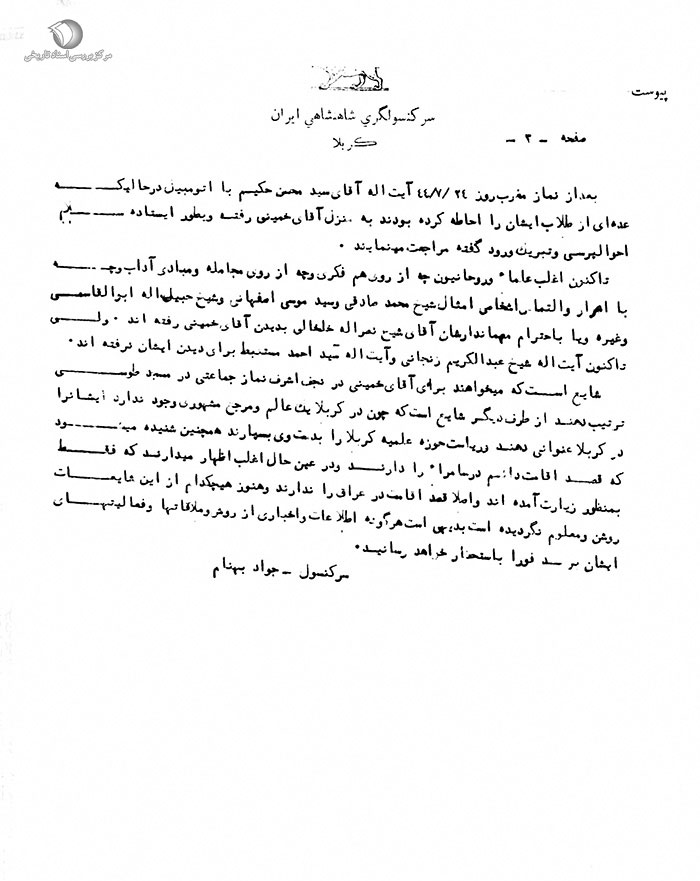 مرکز بررسی اسناد تاریخی
پیوست
سرکنسولگري شاهنشاهي ایران
کربلا
صفحه - ۳ -
بعداز نماز مغرب روز ۴۴/۷/۲۴ آیت اله آقای سید محسن حکیم با اتومبیل درحالیکه
عده ای از طلاب ایشان را احاطه کرده بودند به منزل آقای خمینی رفته وبطور ایستاده سلام
احوالپرسی وتبریک ورود گفته مراجعت مینمایند .
تاکنون اغلب علماء وروحانیون چه از روی هم فکری وچه از روی مجامله ومبادی آداب وچه
با اصرار والتماس اشخاصی امثال شیخ محمد صادقی وسید موسی اصفهانی وشیخ حبیب اله ابوالقاسمی
وغیره ویا باحترام مهماندارشان آقای شیخ نصراله خلخالی بدیدن آقای خمینی رفته اند . ولی
تاکنون آیت اله شیخ عبدالکریم زنجانی وآیت اله سید احمد مستنبط برای دیدن ایشان نرفته اند .
شایع است که میخواهند برای آقای خمینی در نجف اشرف نماز جماعتی در مسجد طوسی
ترتیب دهند از طرف دیگر شایع است که چون در کربلا یک عالم ومرجع مشهوری وجود ندارد ایشانرا
در کربلا عنوانی دهند وریاست حوزه علمیه کربلا را بدست وی بسپارند همچنین شنیده میشود
که قصد اقامت دائم درسامراء را دارند ودر عین حال اغلب اظهار میدارند که فقط
بمنظور زیارت آمده اند واصلا قصد اقامت در عراق را ندارند وهنوز هیچکدام از این شایعات
روشن ومعلوم نگردیده است بدیهی است هرگونه اطلاعات واخباری از روش وملاقاتها وفعالیتهای
ایشان برسد فورا باستحضار خواهد رسانید .
سرکنسول - جواد بهنام